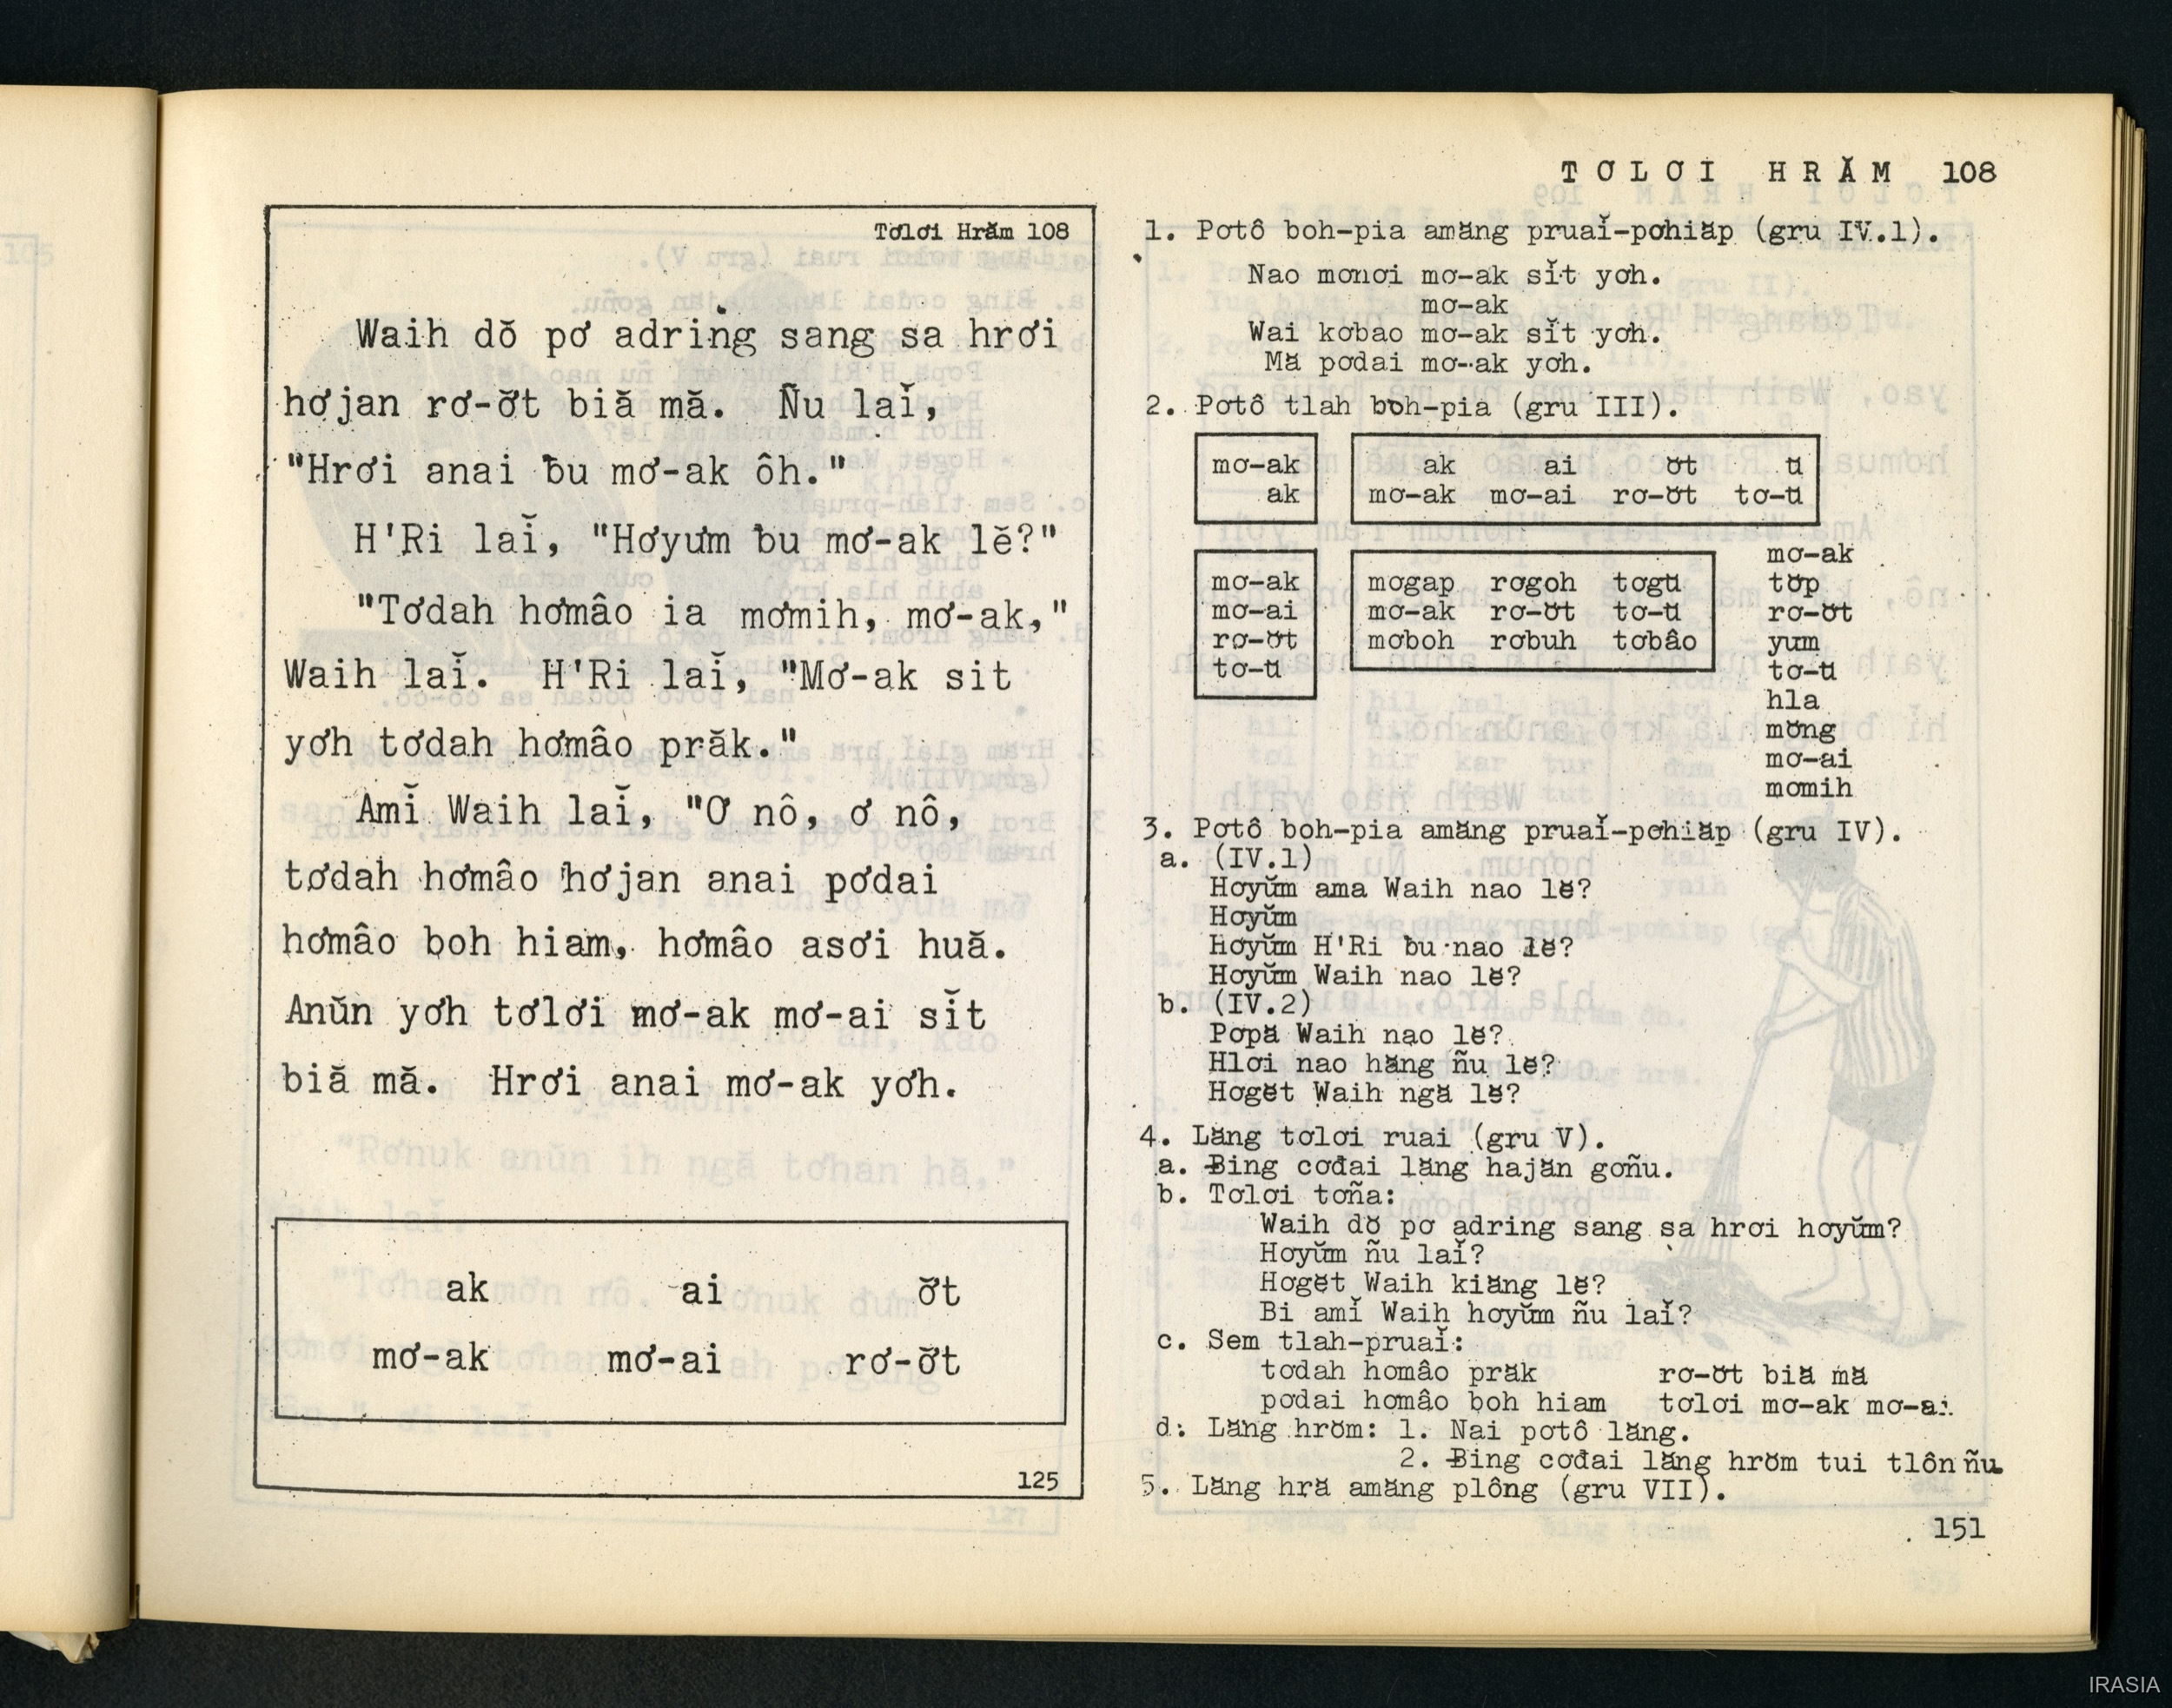 Tơlơi Hrăm 108
Waih dŏ pơ adring sang sa hrơi
hơjan rơ-ơ̆t biă mă. Ñu laĭ,
"Hrơi anai ƀu mơ-ak ôh."
H'Ri laĭ, "Hơyưm ƀu mơ-ak lĕ?"
"Tơdah hơmâo ia mơmih, mơ-ak,"
Waih laĭ. H'Ri laĭ, "Mơ-ak sit
yơh tơdah hơmâo prăk."
Amĭ Waih laĭ, "Ơ nô, ơ nô,
tơdah hơmâo hơjan anai pơdai
hơmâo boh hiam, hơmâo asơi huă.
Anŭn yơh tơlơi mơ-ak mơ-ai sĭt
biă mă. Hrơi anai mơ-ak yơh.
ak ai ơ̆t
mơ-ak mơ-ai rơ-ơ̆t
125
TƠLƠI HRĂM 108
1. Pơtô boh-pia amăng pruaĭ-pơhiăp (gru IV.1).
Nao mơnơi mơ-ak sĭt yơh.
mơ-ak
Wai kơbao mơ-ak sĭt yơh.
Mă pơdai mơ-ak yơh.
2. Pơtô tlah boh-pia (gru III).
mơ-ak ak ai ơ̆t ŭ
ak mơ-ak mơ-ai rơ-ơ̆t tơ-ŭ
mơ-ak
mơ-ak mơgap rơgoh tơgŭ tơ̆p
mơ-ai mơ-ak rơ-ơ̆t tơ-ŭ rơ-ơ̆t
rơ-ơ̆t mơboh rơbuh tơbâo yum
tơ-ŭ tơ-ŭ
hla
mơ̆ng
mơ-ai
mơmih
3. Pơtô boh-pia amăng pruaĭ-pơhiăp (gru IV).
a. (IV.1)
Hơyư̆m ama Waih nao lĕ?
Hơyư̆m
Hơyư̆m H'Ri ƀu nao lĕ?
Hơyư̆m Waih nao lĕ?
b. (IV.2)
Pơpă Waih nao lĕ?
Hlơi nao hăng ñu lĕ?
Hơgĕt Waih ngă lĕ?
4. Lăng tơlơi ruai (gru V).
a. Ƀing cơđai lăng hajăn gơñu.
b. Tơlơi tơña:
Waih dŏ pơ adring sang sa hrơi hơyư̆m?
Hơyư̆m ñu laĭ?
Hơgĕt Waih kiăng lĕ?
Bi amĭ Waih hơyư̆m ñu laĭ?
c. Sem tlah-pruaĭ:
tơdah hơmâo prăk rơ-ơ̆t biă mă
pơdai hơmâo boh hiam tơlơi mơ-ak mơ-ai.
d. Lăng hrŏm: 1. Nai pơtô lăng.
2. Ƀing cơđai lăng hrŏm tui tlôn ñu.
5. Lăng hră amăng plông (gru VII).
151
IRASIA